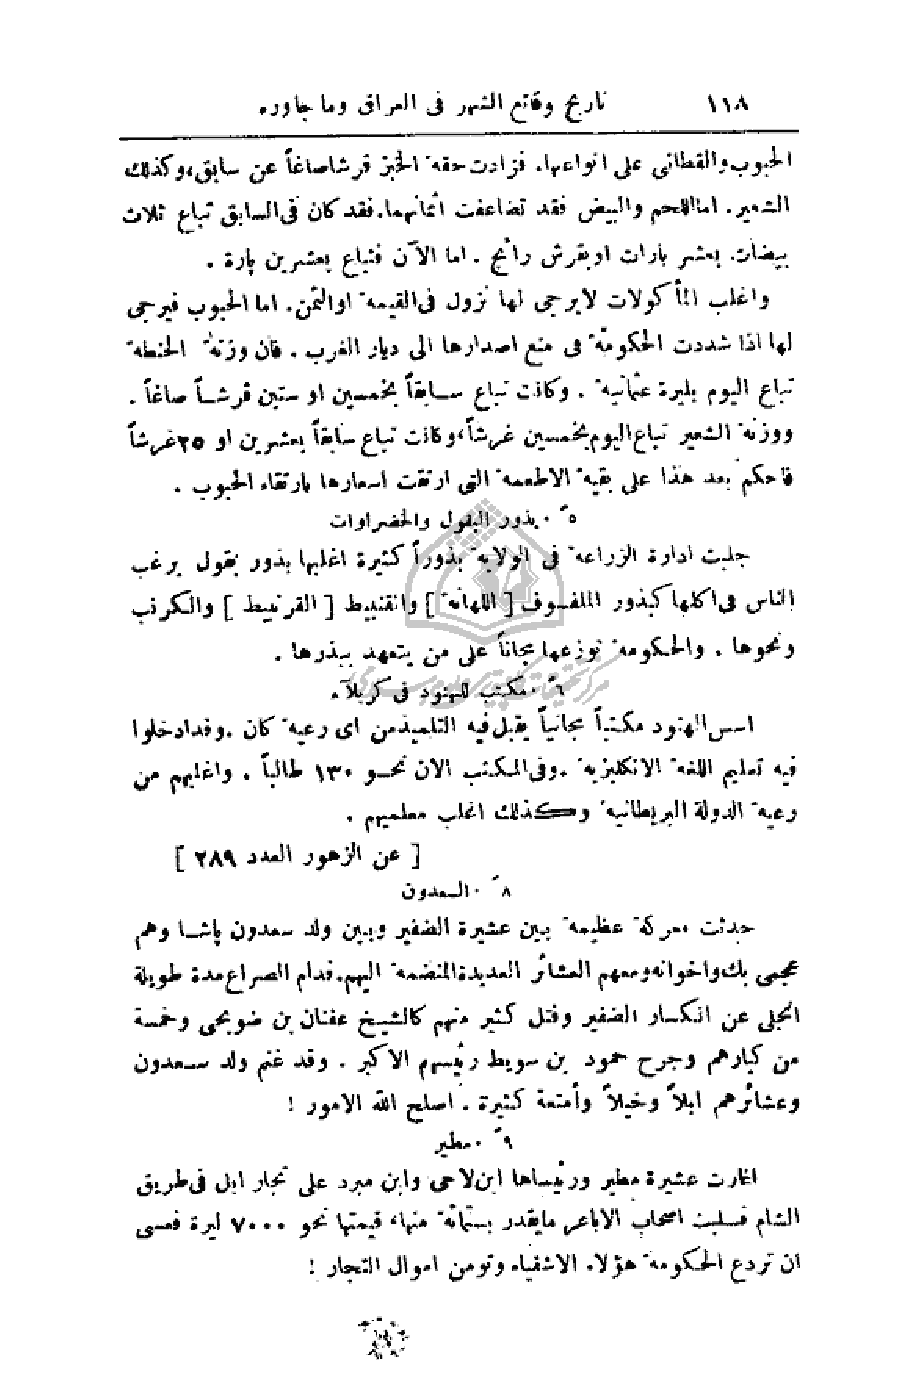 ١١٨ تاريخ وقائع الشهر في العراق وما جاوره
الحبوب والقطاني على انواعها. فزادت حقة الخبز قرشا صاغاً عن سابق، وكذلك
الشعير. اما اللحم والبيض فقد تضاعفت اثمانهما. فقد كان في السابق تباع ثلاث
بيضات بعشر بارات او بقرش رائج. اما الآن فتباع بعشرين پارة.
واغلب المأكولات لا يرجى لها نزول في القيمة او الثمن. اما الحبوب فيرجى
لها اذا شددت الحكومة في منع اصدارها الى ديار الغرب. فان وزنة الحنطة
تباع اليوم بليرة عثمانية. وكانت تباع سابقاً بخمسين او ستين قرشاً صاغاً.
ووزنة الشعير تباع اليوم بخمسين غرشاً، وكانت تباع سابقاً بعشرين او ٢٥ غرشاً
فاحكم بعد هذا على بقية الاطعمة التي ارتقت اسعارها بارتقاء الحبوب.
٥ً. بذور البقول والخضراوات
جلبت ادارة الزراعة في الولاية بذوراً كثيرة اغلبها بذور بقول يرغب
الناس في اكلها كبذور الملفوف [ اللهانة ] والقنبيط [ القرنبيط ] والكرنب
ونحوها. والحكومة توزعها مجاناً على من يتعهد ببذرها.
٦ً. مكتب للهنود في كربلآء
اسس الهنود مكتباً مجانياً يقبل فيه التلميذ من اى رعية كان. وقد ادخلوا
فيه تعليم اللغة الانكليزية. وفي المكتب الان نحو ١٣٠ طالباً. واغلبهم من
رعية الدولة البريطانية وكذلك اغلب معلميهم.
[ عن الزهور العدد ٢٨٩ ]
٨ً. السعدون
حدثت معركة عظيمة بين عشيرة الضفير وبين ولد سعدون پاشا وهم
عجمي بك واخوانه ومعهم العشائر العديدة المنضمة اليهم. فدام الصراع مدة طويلة
انجلى عن انكسار الضفير وقتل كثير منهم كالشيخ عفنان بن ضويحى وخمسة
من كبارهم وجرح حمود بن سويط رئيسهم الاكبر. وقد غنم ولد سعدون
وعشائرهم ابلاً وخيلاً وأمتعة كثيرة. اصلح الله الامور !
٩ً. مطير
اغارت عشيرة مطير ورئيساها ابن لاحى وابن مبرد على تجار ابل في طريق
الشام فسلبت اصحاب الاباعر ما يقدر بستمائة منها، قيمتها نحو ٧٠٠٠ ليرة فعسى
ان تردع الحكومة هؤلاء الاشقياء وتومن اموال التجار !